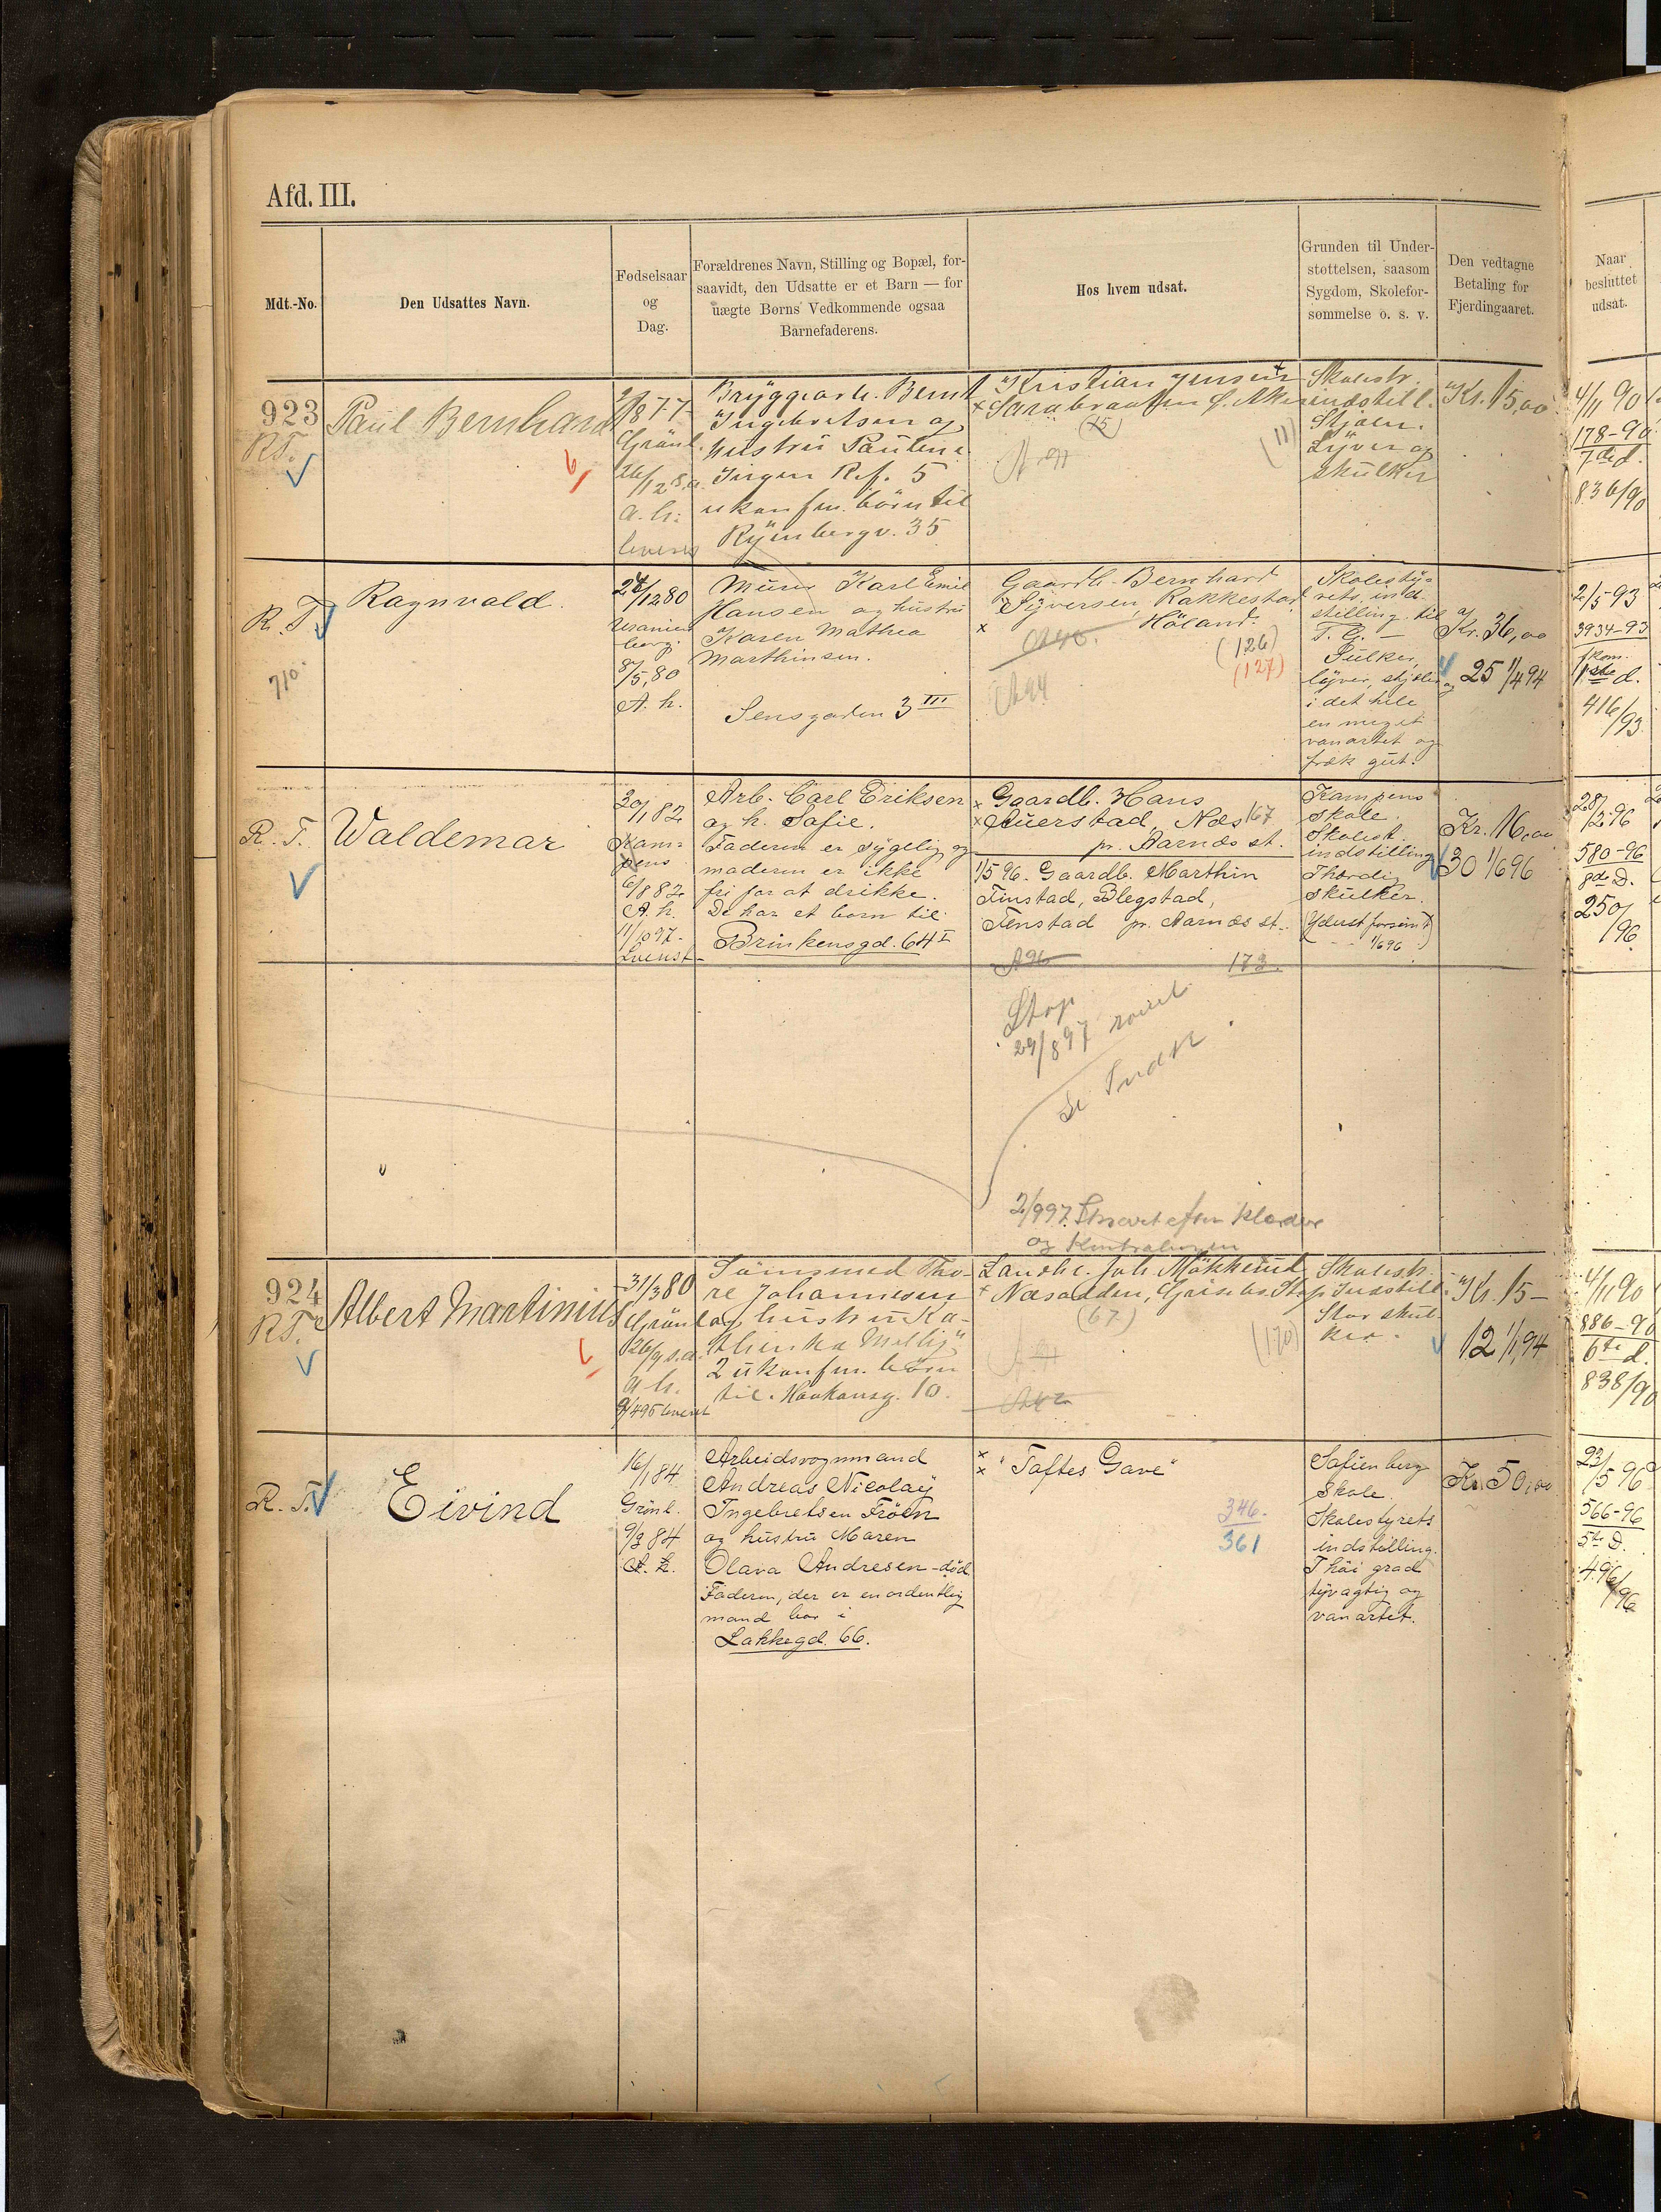 Afd. III.
Mdt.-No.
Den Udsattes Navn.
Fødselsaar
og
Dag.
Forældrenes Navn, Stilling og Bopæl, for-
saavidt, den Udsatte er et Barn — for
uægte Børns Vedkommende ogsaa
Barnefaderens.
Hos hvem udsat.
Grunden til Under-
støttelsen, saasom
Sygdom, Skolefor-
sømmelse o. s. v.
Den vedtagne
Betaling for
Fjerdingaaret.
Naar
besluttet
udsat.
923
R.T.
Paul Bernhard
Grönl.
a. h.
Bryggearb. Bernt
Ingebretsen og
hustru Pauline
Jörgen R.f. 5
ukonfm. börn til
Ryenbergv. 35
Kristian Jensen
(15)
(11)
Skolestr.
indstill.
Stjæler.
Lyver og
skulker
Kr. 15,00
4/11 90
178-90
7de d.
836/90
R. T.
710
Ragnvald.
24/12 80
Uranien-
borg.
8/5,80
A. h.
Murer Karl Emil
Hansen og hustru
Karen Mathea
Marthinsen.
3 III
Gaardb. Bernhard
Syversen, Rakkestad
Höland.
(126)
(127)
Skolesty-
rets ind-
stilling til
T. G. —
Skulker,
lyver, stjæler og
i det hele
en meget
vanartet og
fræk gut.
Kr. 36,00
25 1/4 94
2/5 93
3934-93
fkom.
1ste d.
416/93
R. T.
Waldemar
20/1 82
Kam-
pens
6/8 82
A. h.
11/10 97
Arb. Carl Eriksen
og h. Sofie.
Faderen er sygelig og
moderen er ikke
fri for at drikke.
De har et barn til.
Brinkensgd. 64 I
Gaardb. Hans
Auerstad, Næs 167
pr. Aarnæs st.
1/5 96. Gaardb. Marthin
Finstad, Blegstad,
Fenstad pr. Aarnæs st.
A96
173.
Stop
29/8 97
Se Indst
2/9 97. Skrevet efter klæder
og Kontrabogen
Kampens
skole.
Skolest.
indstilling
Ihærdig
skulker.
(Yderst forsömt)
1/6 96
Kr. 16,00
30 1/6 96
28/2 96
580-96
8de D.
250/96
924
R.T.
Albert Martinius
31/3 80
Grönl.
26/9 s.a.
a h.
9/4 95 leveret
Tömmermd Tho-
re Johannesen
og hustru Ka-
thinka Mellbÿ
2 ukonfm. börn
til. Haakonsg. 10.
Landh. Joh. Mökkerud
Næsodden,
(67)
(170)
Skolestr.
Indstill.
Stor skul-
ker.
Kr. 15 —
12 1/1 94
4/11 90
886-90
6te d.
838/90
R. T.
Eivind
16/1 84
Grönl.
9/3 84
A. h.
Arbeidsvognmand
Andreas Nicolay
Ingebretsen Fröen
og hustru Maren
Olava Andresen - död
Faderen, der er en ordentlig
mand bor i
Lakkegd. 66.
"Toftes Gave"
346.
361
Sofienberg
skole.
Skolestyrets
indstilling.
I höi grad
tyvagtig og
vanartet.
Kr. 50,00
23/5 96
566-96
5te D.
496/96